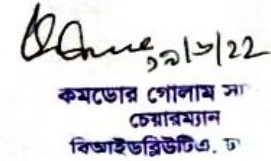 ২১/৮/22
কমডোর গোলাম সা
চেয়ারম্যান
বিআইডব্লিউটিএ, ঢ